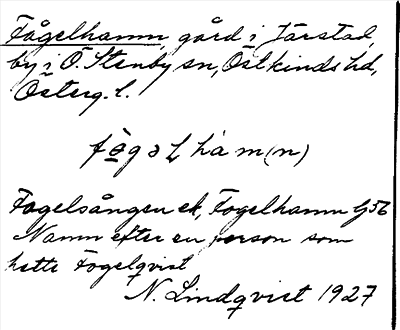 Fågelhamn, gård i Järstad,
by i Ö. Stenby sn, Östkinds hd,
Österg. l.
Fogelsången ek, Fogelhamn G56
Namn efter en person som
hette Fogelqvist
N. Lindqvist 1927